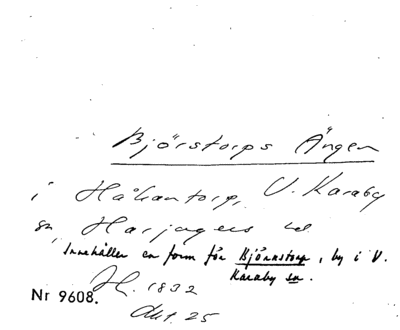 Björstorps Ängen
i Håkantorp, V. Karaby
sn, Harjagers hd
Innehåller en form för Björnstorp, by i V.
Karaby sn.
H. 1832
Akt. 25
Nr 9608.